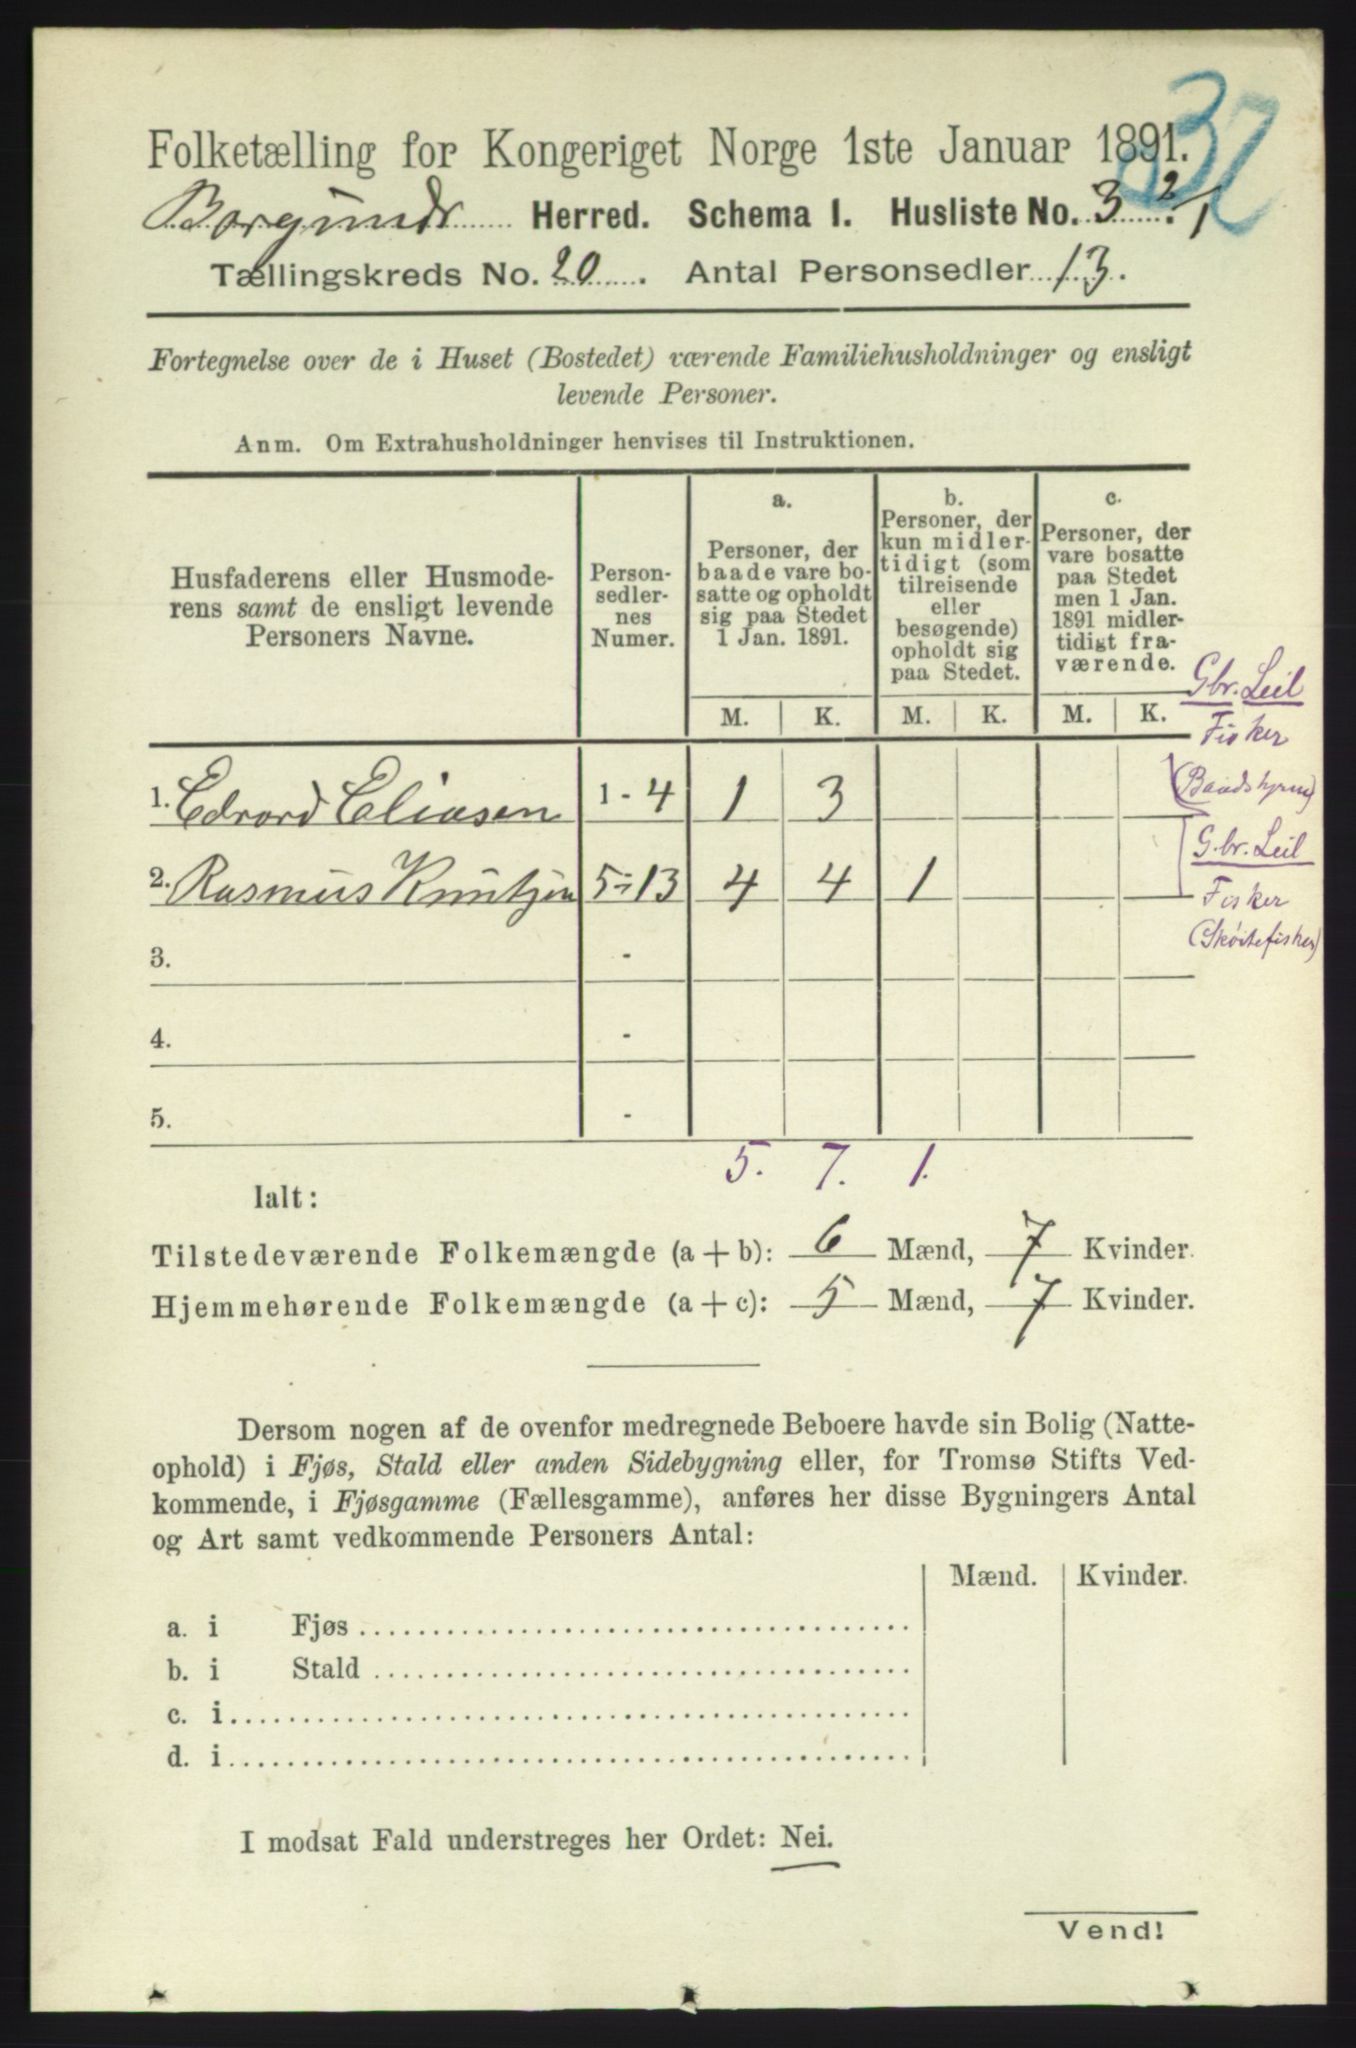 32
Folketælling for Kongeriget Norge 1ste Januar 1891.
Borgund Herred. Schema 1. Husliste No. 3 2/1
Tællingskreds No. 20. Antal Personsedler 13.
Fortegnelse over de i Huset (Bostedet) værende Familiehusholdninger og ensligt
levende Personer.
Anm. Om Extrahusholdninger henvises til Instruktionen.
Husfaderens eller Husmode-
rens samt de ensligt levende
Personers Navne.
Person-
sedler-
nes
Numer.
a.
Personer, der
baade vare bo-
satte og opholdt
sig paa Stedet
1 Jan. 1891.
b.
Personer, der
kun midler-
tidigt (som
tilreisende
eller
besøgende)
opholdt sig
paa Stedet.
c.
Personer, der
vare bosatte
paa Stedet
men 1 Jan.
1891 midler-
tidigt fra-
værende.
M. K. M. K. M. K.
Gbr. Leil
Fisker
1. Edvard Eliasen 1 - 4 1 3
G.br. Leil
2. Rasmus Knutzen 5-13 4 4 1
Fisker
(Skøitefisker)
3. -
4. -
5. -
5. 7. 1.
Ialt:
Tilstedeværende Folkemængde (a + b): 6 Mænd, 7 Kvinder.
Hjemmehørende Folkemængde (a + c): 5 Mænd, 7 Kvinder.
Dersom nogen af de ovenfor medregnede Beboere havde sin Bolig (Natte-
ophold) i Fjøs, Stald eller anden Sidebygning eller, for Tromsø Stifts Ved-
kommende, i Fjøsgamme (Fællesgamme), anføres her disse Bygningers Antal
og Art samt vedkommende Personers Antal:
Mænd. Kvinder.
a. i Fjøs
b. i Stald
c. i
d. i
I modsat Fald understreges her Ordet: Nei.
Vend!